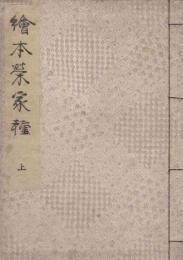 繪本榮家種
上